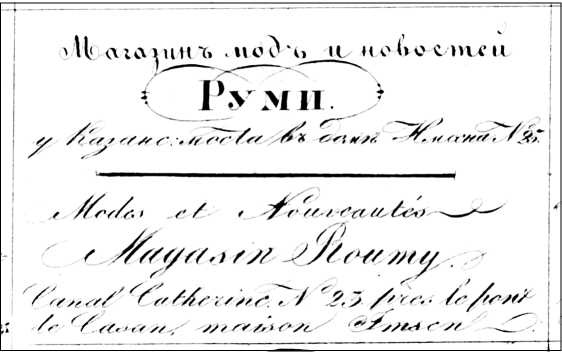 Магазинъ модъ и новостей
Руми.
у Казанс: моста въ домѣ Имсена № 25.
Modes et Nouveautés
Magasin Roumy.
Canal Catherine, N 25. pres le pont
de Casan, maison Imsen